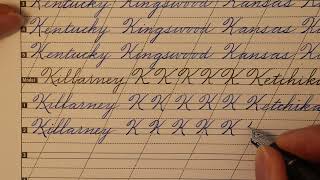 Kentucky Kingswood Kansas K
4 Kentucky Kingswood Kansas K
5 Kentucky Kingswood Kansas K
Model Killarney K K K K K Ketchik
1 Killarney K K K K K Ketchika
2 Killarney K K K K K